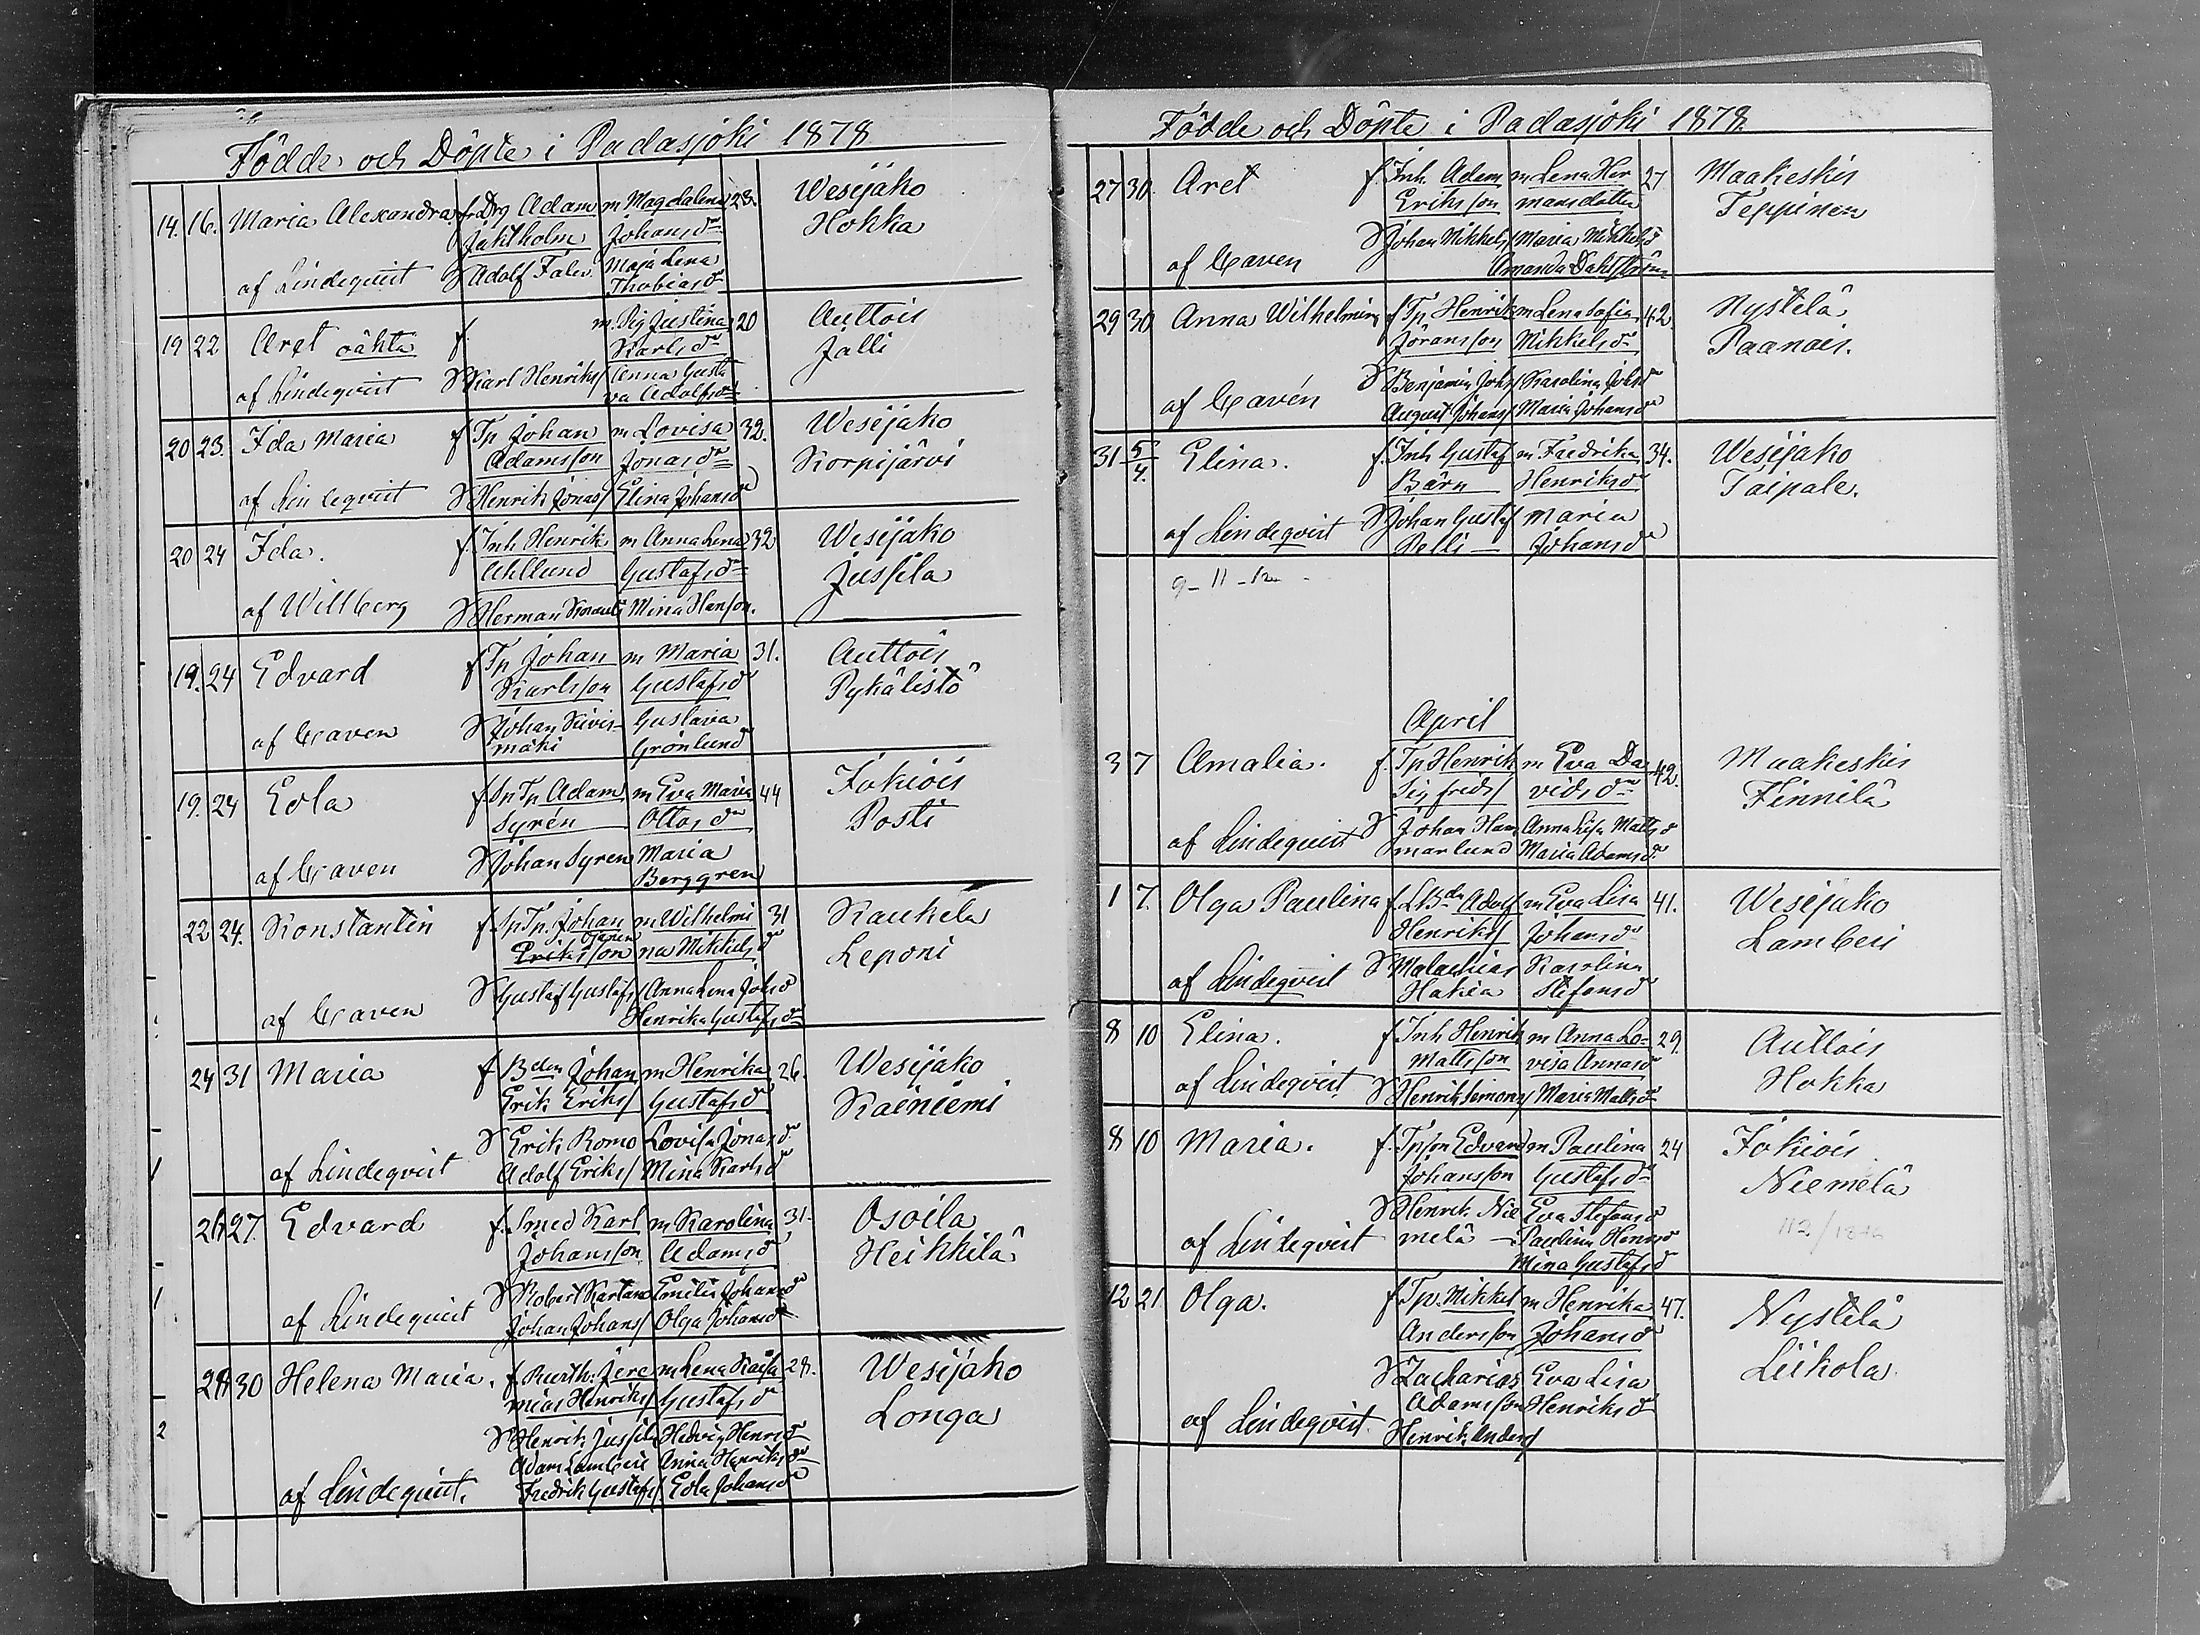 Födde och Döpte i Padasjoki 1878
14. 16. Maria Alexandra f. Drg Adam m Magdalena 23. Wesijako
Jaktholm Johansdr Hokka
af Lindeqvist Adolf Maja Lena
Thobiasdr
19 22 Aret oäkta f. m. Pig Justina 20 Auttois
Karlsdr Jalli
af Lindeqvist Karl Henriks/ Anna Gusta
va Adolfsdr
20 23. Ida Maria f Tp Johan m Lovisa 32. Wesijako
Adamsson Jonasdr Korpijärvi
af Lindeqvist Henrik Jonas/ Elina Johansdr
20 24 Ida. f. Inh Henrik m Anna Lena 32 Wesijako
Ahllund Gustafsdr Jussila
af Willberg Herman Mina Hanson.
19. 24 Edvard f Tp Johan m Maria 31. Auttois
Karlsson Gustafsd Pykälistö
af Caven Johan Kivis- Gustava
mäki Grönlund
19. 24 Edla f. Tp Adam m Eva Maria 44 Jokiois
Syrén Ottosdr Posti
af Caven Johan Syren Maria
Berggren
22 24. Konstantin f. Tp. Johan m Wilhelmi 31 Kaukela
Eriksson na Mikkelsd Leponi
af Caven Gustaf Gustafs/ Anna Lena Johsd
Henrika Gustafsdr
24 31 Maria f Bden Johan m Henrika 26. Wesijako
Erik Eriks/ Gustafsd Kainiemi
Erik Romo Lovisa Jonasdr
af Lindeqvist Adolf Eriks/ Mina Karlsd
26 27. Edvard f. Smed Karl m Karolina 31. Osoila
Johansson Adamsd Heikkilä
Robert Emilia Johansdr
af Lindeqvist Johan Johans/ Olga Johansd
28 30 Helena Maria. f. Jere m Lena Kaisa 28. Wesijako
mias Henriks/ Gustafsd Longa
Henrik Jussila Hedvig Henrsd
Adam Lamberi Anna Henriksdr
af Lindeqvist. Fredrik Gustafs/ Edla Johansdr
Födde och Döpte i Padasjoki 1878.
27 30. Aret f. Inh. Adam m Lena Her 27 Maakeskis
Eriksson mansdotter Teppinen
Johan Mikkels/ Maria Mikkelsd
af Caven Amanda Dahlström
29 30 Anna Wilhelmina f Tp Henrik m Lena Sofia 42 Nystelä
Jöransson Mikkelsdr Paanois.
Benjamin Johs/ Karolina Johsdr
af Cavén August Johans/ Maria Johansdr
31 5/4. Elina. f. Inh Gustaf m Fredrika 34. Wesijako
Bärn Henriksdr Taipale.
af Lindeqvist Johan Gustaf Maria
Pelli — Johansdr
9 - 11 - 12
April
3 7 Amalia. f. Tp Henrik m Eva Da 42. Maakeskis
Sigfrids/ vidsdr Finnilä
Johan Ham Anna Lisa Mattsd
af Lindeqvist marlund Maria Adamsd
1 7. Olga Paulina f. Adolf m Eva Lisa 41. Wesijako
Henriks/ Johansdr Lamberi
Malachias Karolina
af Lindeqvist Hakia Stefansd
8 10 Elina. f Inh Henrik m Anna Lo- 29. Auttois
Mattsson visa Annasd Hokka
af Lindeqvist Henrik Simons/ Maria Mattsdr
8 10 Maria. f. Tpson Edvard m Paulina 24 Jokiois
Johansson Gustafsdr Niemelä
Henrik Nie Eva Stefansd
af Lindeqvist melä — Paulina Henrsd
Mina Gustafsd
12 21 Olga. f Tp. Mikkel m Henrika 47. Nystelä
Andersson Johansd Liikola.
Zacharias Eva Lisa
Adamsson Henriksd
af Lindeqvist. Henrik Anders/